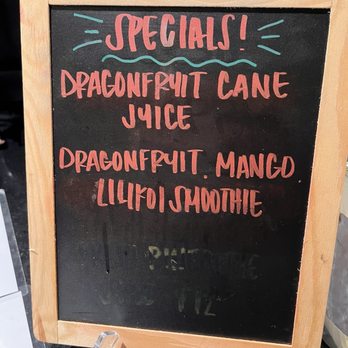 SPECIALS!
DRAGONFRUIT CANE
JUICE
DRAGONFRUIT. MANGO
LILIKOI SMOOTHIE